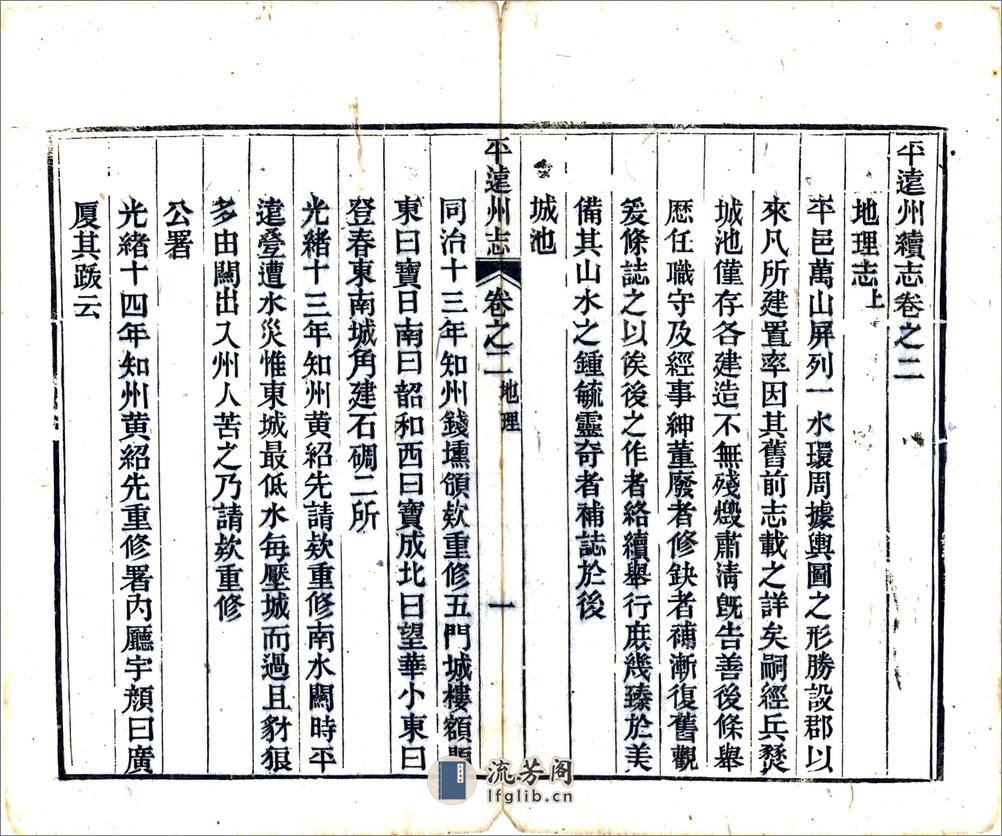 平遠州續志卷之二
地理志上
平邑萬山屏列一水環周據輿圖之形勝設郡以
來凡所建置率因其舊前志載之詳矣嗣經兵燹
城池僅存各建造不無殘燬肅清旣告善後條舉
歷任職守及經事紳董廢者修缺者補漸復舊觀
爰條誌之以俟後之作者絡續舉行庶幾臻於美
備其山水之鍾毓靈奇者補誌於後
城池
平遠州志
卷之二
地理
一
同治十三年知州錢壎領欵重修五門城樓額題
東曰寶日南曰韶和西曰寶成北曰望華小東曰
登春東南城角建石碉二所
光緒十三年知州黄紹先請欵重修南水關時平
遠疊遭水災惟東城最低水每壓城而過且豺狼
多由關出入州人苦之乃請欵重修
公署
光緒十四年知州黄紹先重修署內廳宇顏曰廣
厦其跋云
流芳阁
lfglib.cn